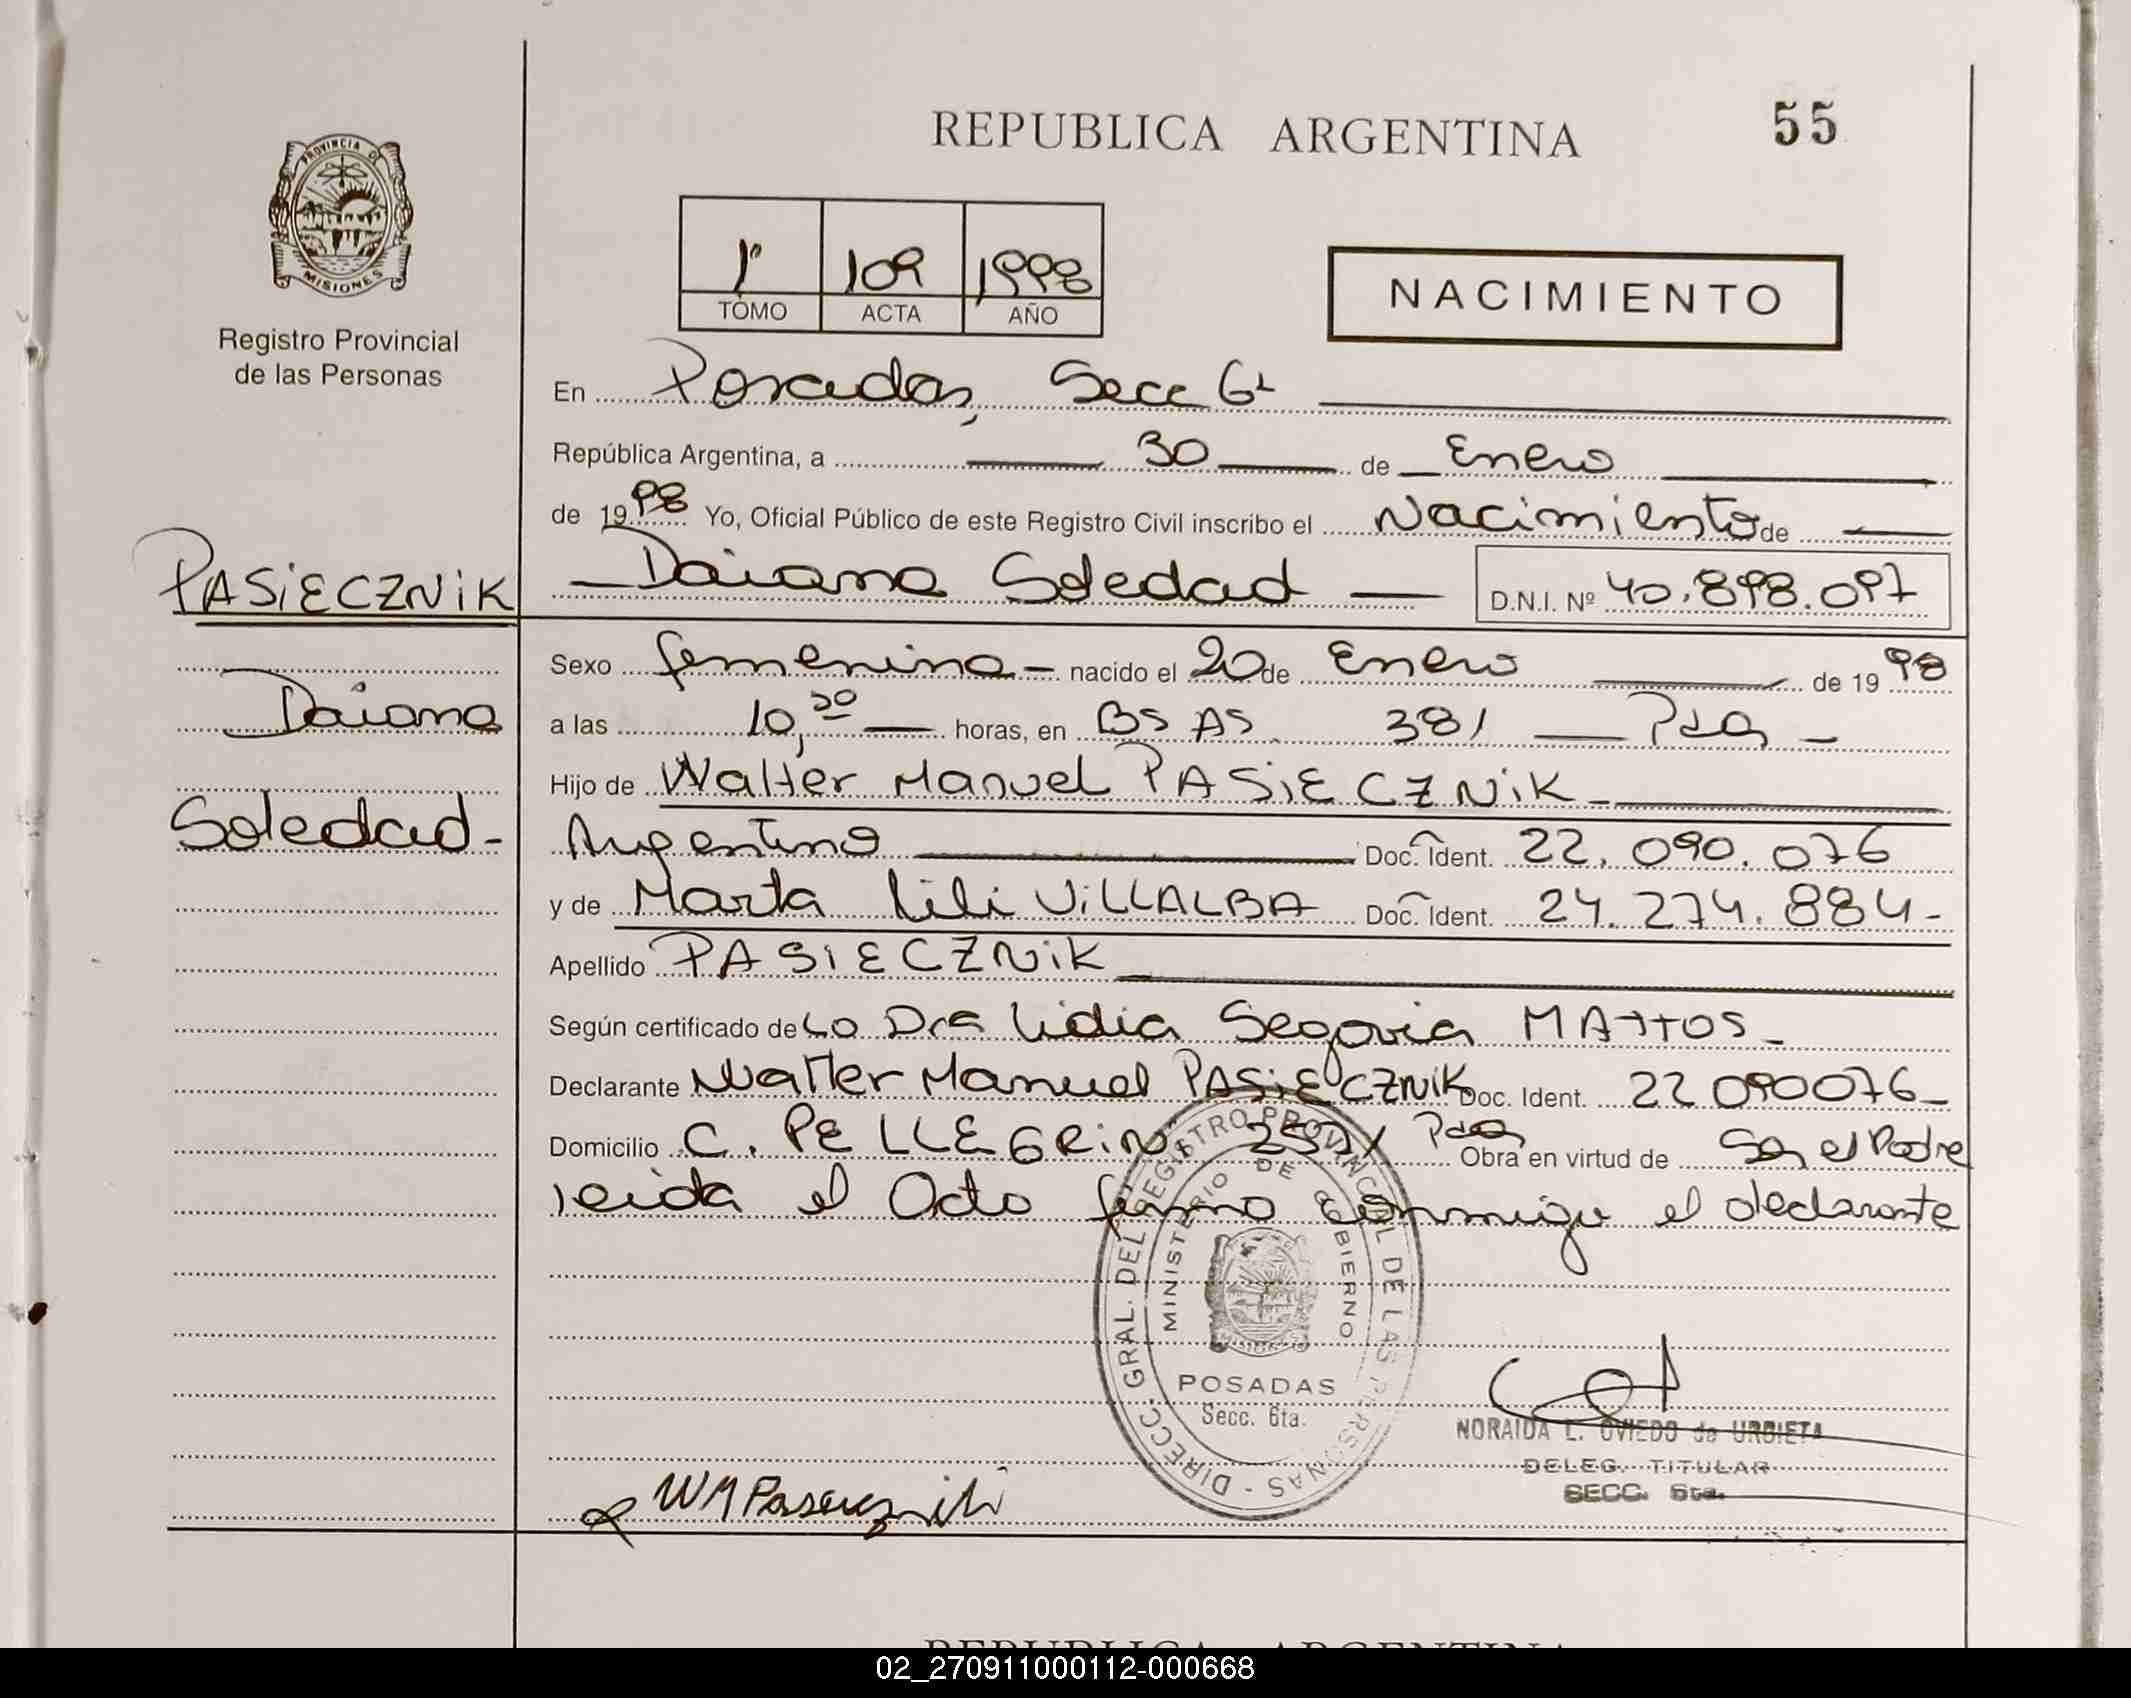 REPUBLICA ARGENTINA
55
PROVINCIA DE MISIONES
Registro Provincial
de las Personas
1º 109 1998
TOMO ACTA AÑO
NACIMIENTO
En Posadas, Secc 6ta
República Argentina, a 30 de Enero
de 1998 Yo, Oficial Público de este Registro Civil inscribo el Nacimiento de
PASIECZNIK
Daiana Soledad D.N.I. Nº 40.898.097
Daiana
Soledad-
Sexo femenino - nacido el 20 de Enero de 1998
a las 10, horas, en BS AS 381 Pdas -
Hijo de Walter Manuel PASIECZNIK -
Argentino Doc. Ident. 22.090.076
y de Marta Lili VILLALBA Doc. Ident. 24.274.884-
Apellido PASIECZNIK
Según certificado de La Dra Lidia Segovia MATTOS -
Declarante Walter Manuel PASIECZNIK Doc. Ident. 22 090076-
Domicilio C. PELLEGRINI Pdas Obra en virtud de Ser el Padre
leida el Acta firma conmigo el declarante
DIRECC. GRAL. DEL REGISTRO PROVINCIAL DE LAS PERSONAS -
MINISTERIO DE GOBIERNO
POSADAS
Secc. 6ta.
NORAIDA L. OVIEDO de URBIETA
DELEG. TITULAR
SECC. 6ta.
WMPasiecznik
REPUBLICA ARGENTINA
02_270911000112-000668